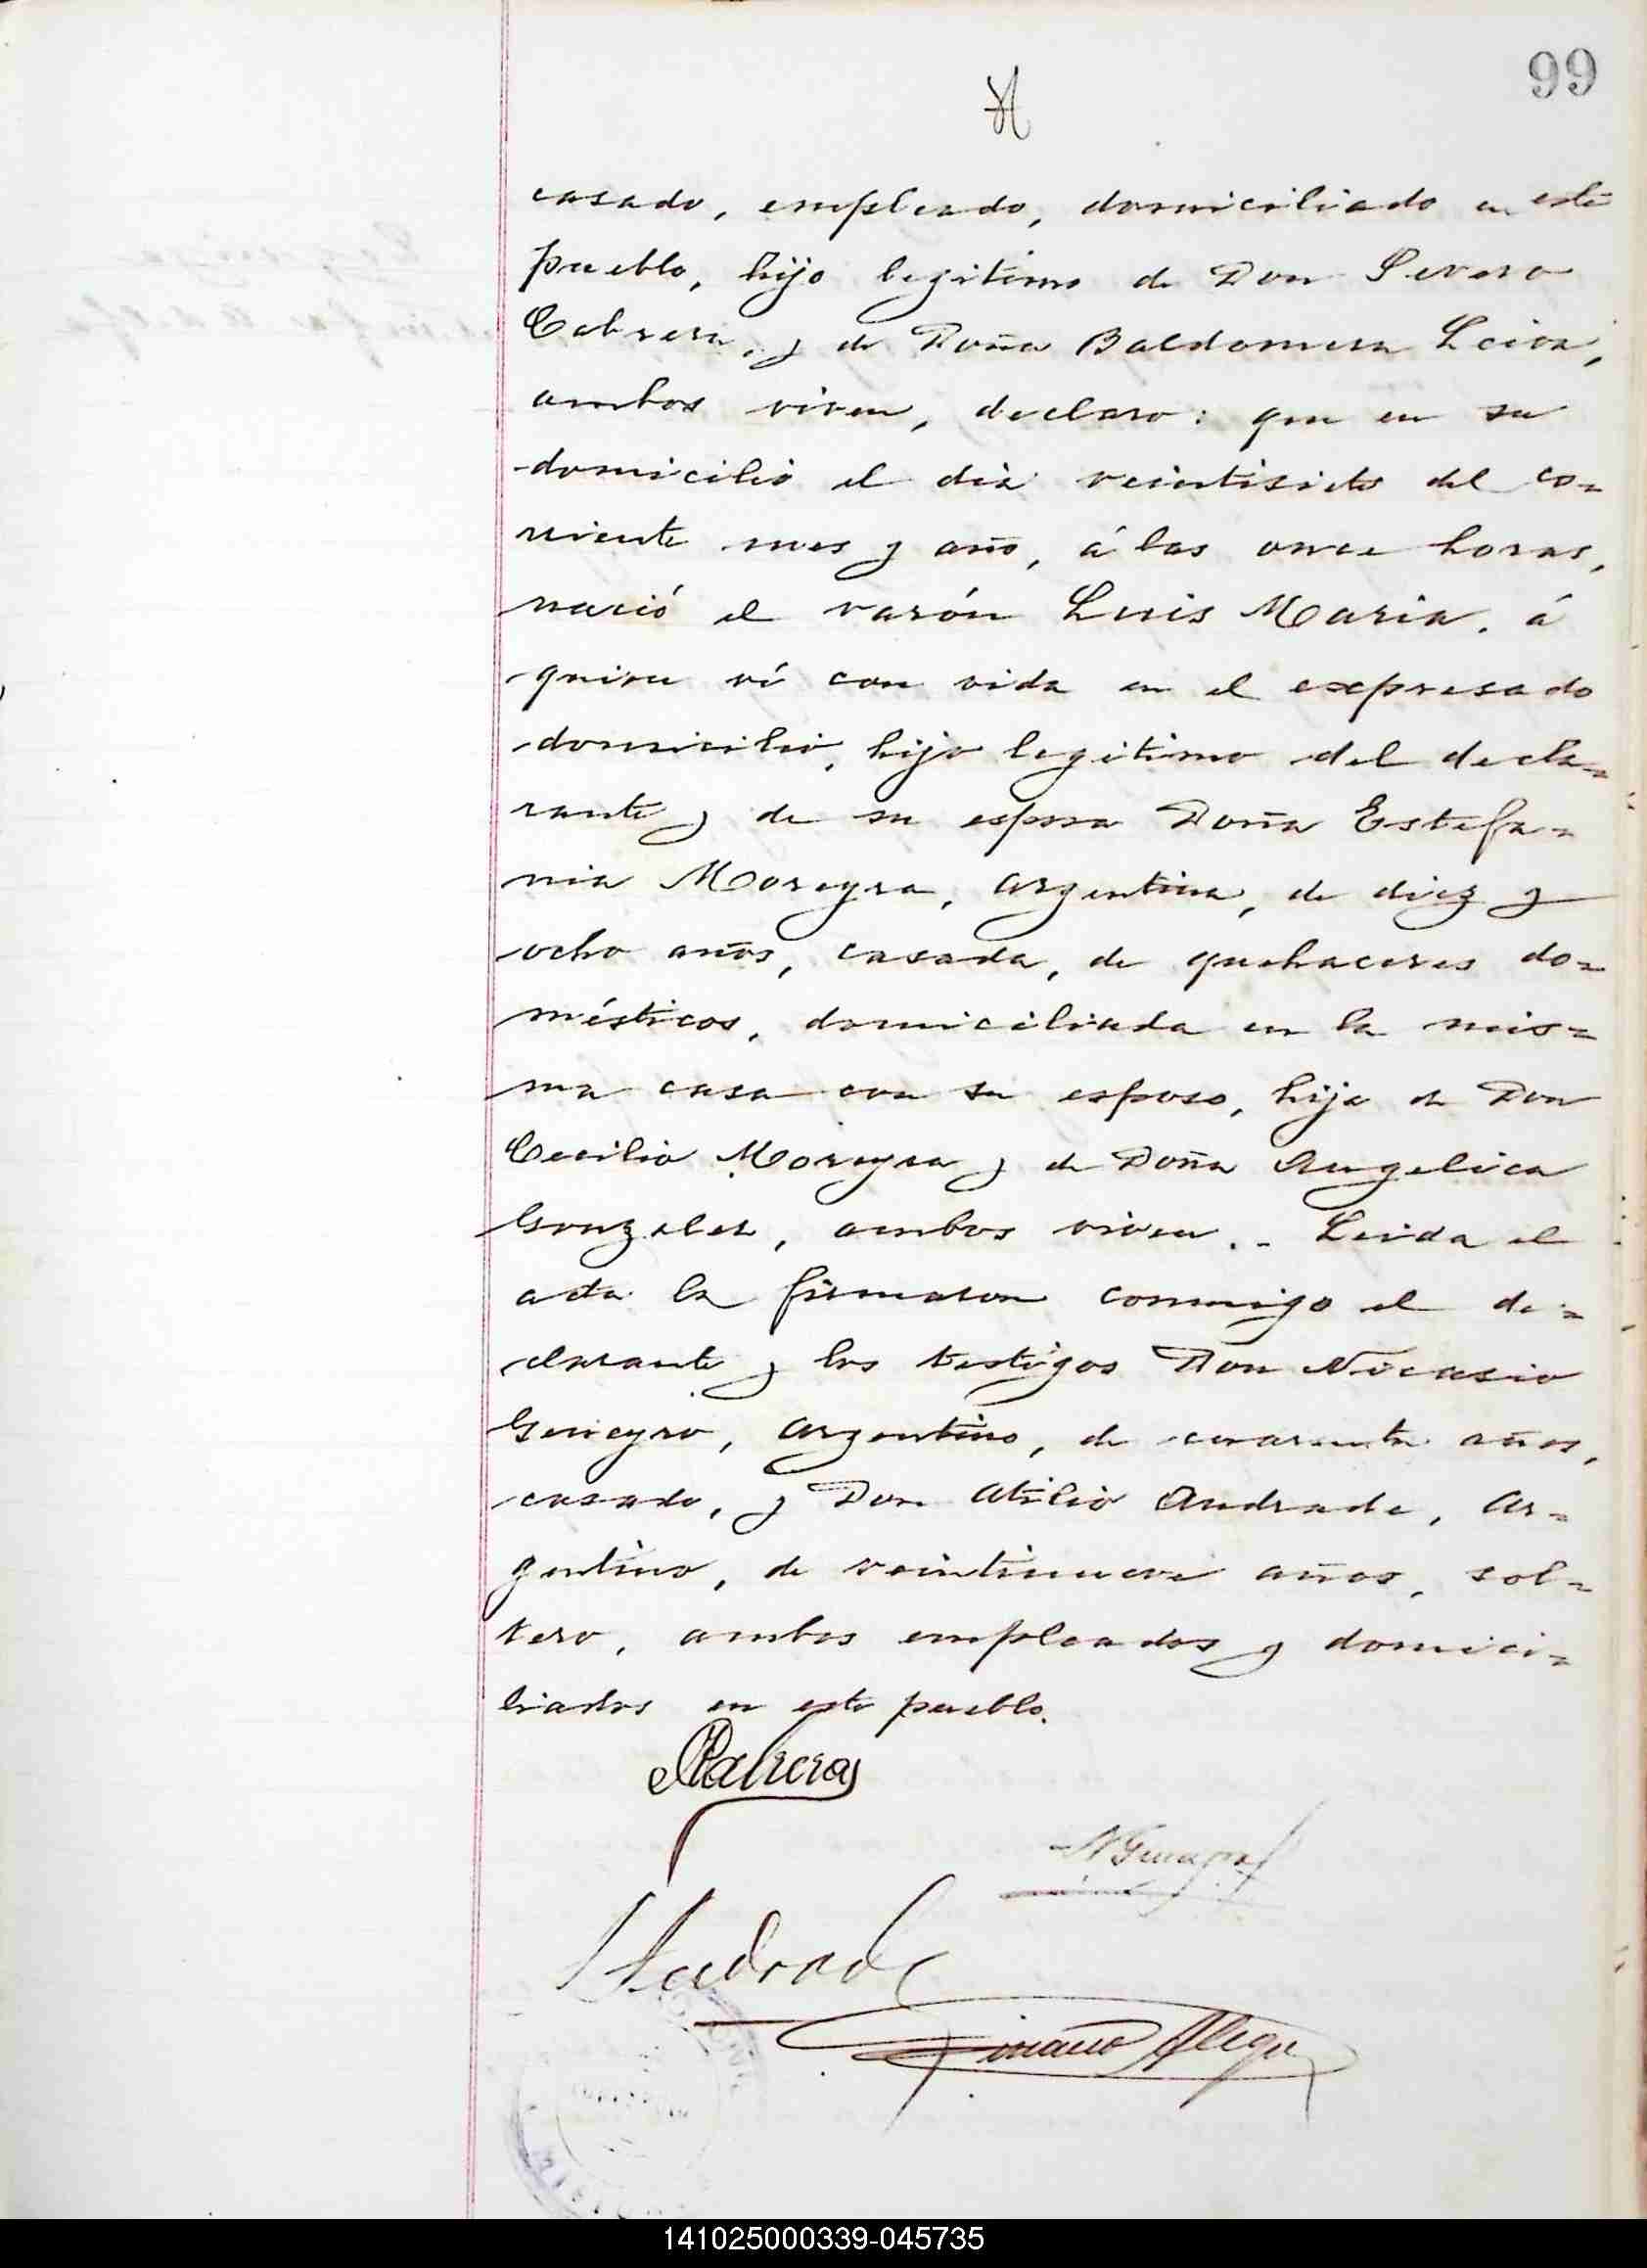 99
casado, empleado, domiciliado en este
pueblo, hijo legitimo de Don Severo
Cabrera, y de Doña Baldomera Leiva,
ambos viven, declaro: que en su
domicilio el dia veintisiete del co=
rriente mes y año, á las once horas,
nació el varón Luis Maria. á
quien ví con vida en el expresado
domicilio, hijo legitimo del decla=
rante y de su esposa Doña Estefa=
nia Moreyra, argentina, de diez y
ocho años, casada, de quehaceres do=
mésticos, domiciliada en la mis=
ma casa con su esposo, hija de Don
Cecilio Moreyra y de Doña Angelica
Gonzalez, ambos viven.- Leida el
acta la firmaron conmigo el de=
clarante y los testigos Don Nicasio
Geneyro, argentino, de cuarenta años,
casado, y Don Atilio Andrade, ar=
gentino, de veintinueve años, sol=
tero, ambos empleados y domici=
liados en este pueblo.
Cabrera
Andrade
Alegre
141025000339-045735